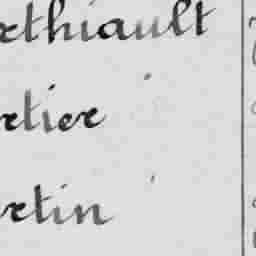 rthiault
rtier
rtin